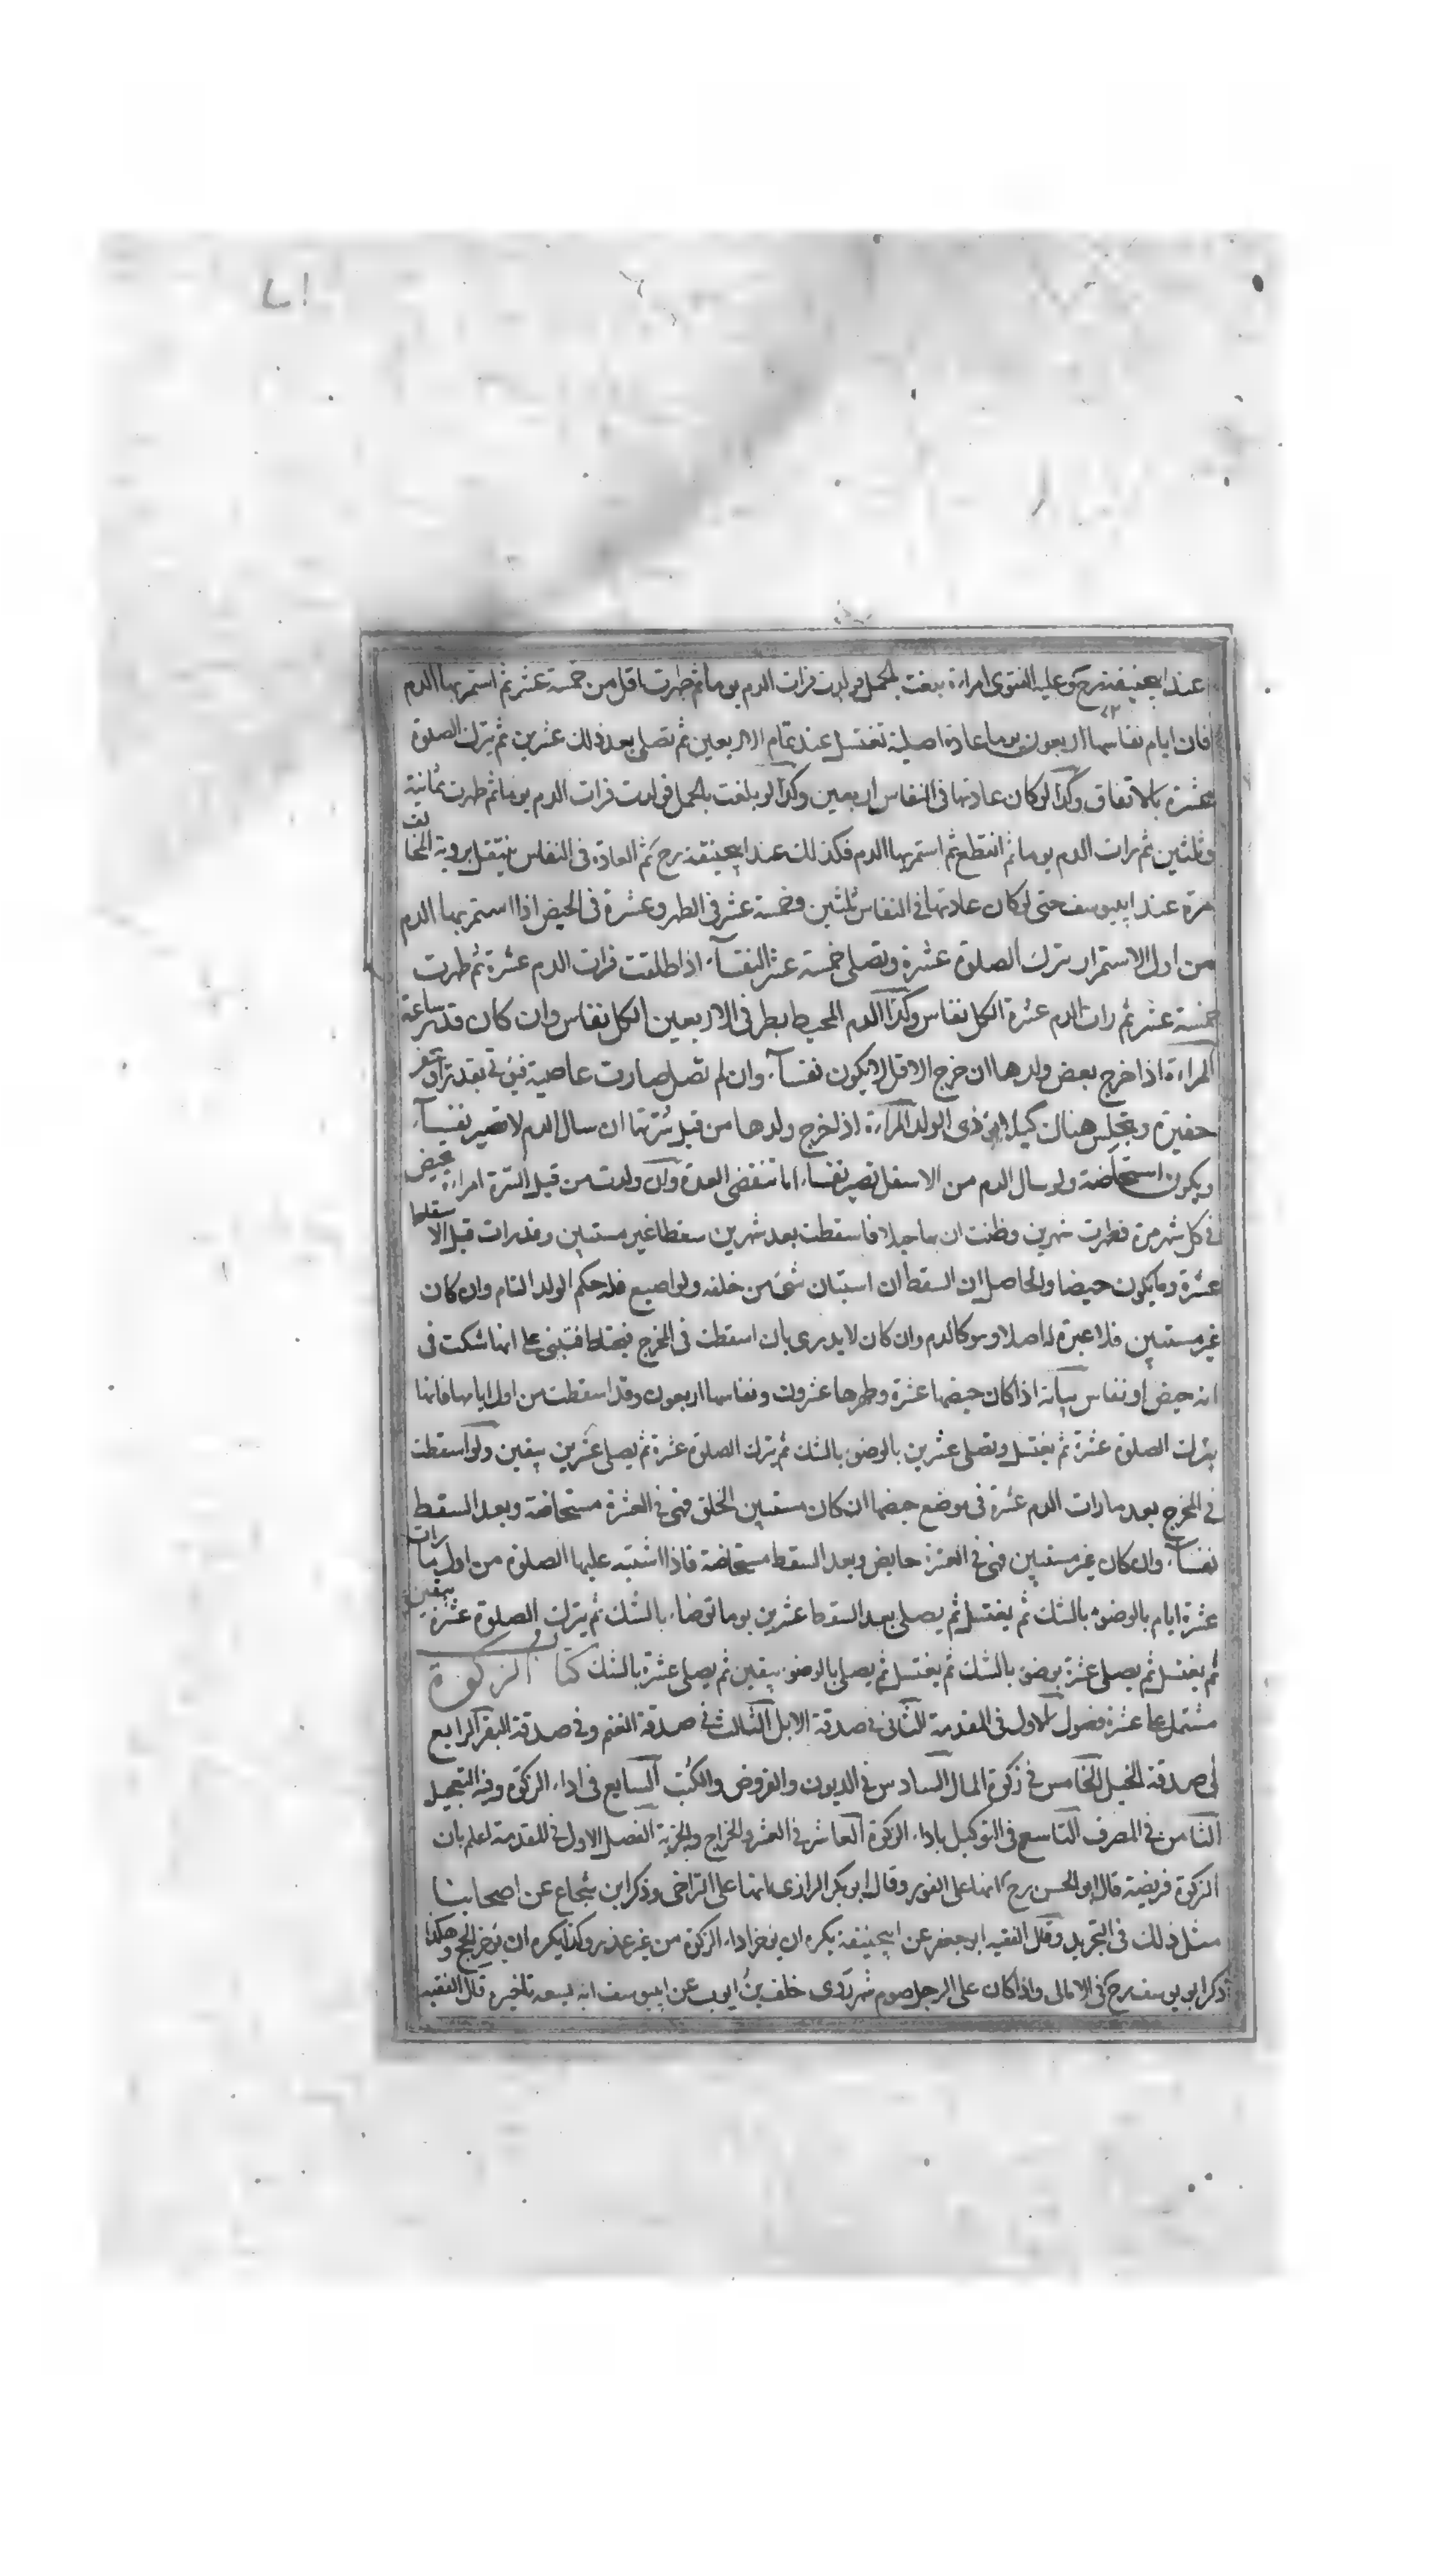 ٧١
عند ابيحنيفة رح وعليه الفتوى امراءة بلغت بالحمل فولدت فرات الدم يوما ثم طهرت اقل من خمسة عشر ثم استمر بها الدم
فان ايام نفاسها اربعون يوما عادة اصلية تغتسل عند تمام الاربعين ثم تصلى بعد ذلك عشرين ثم يترك الصلوة
عشرة بالاتفاق وكذا لو كان عادتها فى النفاس اربعين وكذا لو بلغت بالحمل فولدت فرات الدم يوما ثم طهرت ثمانية
وثلثين ثم رات الدم يوما ثم انقطع ثم استمر بها الدم فكذلك عند ابيحنيفة رح ثم العادة فى النفاس ينتقل بروية المخالف
مرة عند ابييوسف حتى لو كان عادتها فى النفاس ثلثين وخمسة عشر فى الطهر وعشرة فى الحيض اذا استمر بها الدم
من اول الاستمرار يترك الصلوة عشرة وتصلى خمسة عشر النفسآء اذا طلقت فرات الدم عشرة ثم طهرت
خمسة عشر ثم رات الدم عشرة الكل نفاس وكذا الدم المحيط بطرفى الاربعين الكل نفاس وان كان قدر ساعة
المراءة اذا خرج بعض ولدها ان خرج الاقل لا يكون نفسآء وان لم تصل صارت عاصية فتؤتى بقدر او تحفر
حفيرة وتجلس هناك كيلا يؤذى الولد المراءة اذا خرج ولدها من قبل سرتها ان سال الدم لا تصير نفسآء
ويكون استحاضة ولو سال الدم من الاسفل تصير نفساء اما تنقضى العدة وان ولدت من قبل السرة امراءة تحيض
فى كل شهر مرة فطهرت شهرين وظنت ان بها حبلا فاسقطت بعد شهرين سقطا غير مستبين وقد رات قبل الاسقاط
عشرة دما يكون حيضا والحاصل ان السقط ان استبان شئ من خلقه ولو اصبع فله حكم الولد التام وان كان
غير مستبين فلا عبرة له اصلا وهو كالدم وان كان لا يدرى بان اسقطت فى المخرج فيبنى على انها شكت فى
انه حيض او نفاس بيانه اذا كان حيضها عشرة وطهرها عشرون ونفاسها اربعون وقد اسقطت من اول ايامها فانها
يترك الصلوة عشرة ثم يغتسل وتصلى عشرين بالوضوء بالشك ثم يترك الصلوة عشرة ثم يصلى عشرين بيقين ولو اسقطت
فى المخرج بعد ما رات الدم عشرة فى موضع حيضها ان كان مستبين الخلق فهى فى العشرة مستحاضة وبعد السقط
نفسآء وان كان غير مستبين فهى فى العشرة حايض وبعد السقط مستحاضة فاذا اشتبه عليها الصلوة من اول ما رات
عشرة ايام بالوضوء بالشك ثم يغتسل ثم يصلى بعد السقط عشرين يوما توضاء بالشك ثم يترك الصلوة عشرة بيقين
ثم يغتسل ثم يصلى عشرة بوضوء بالشك ثم يغتسل ثم يصلى بالوضوء بيقين ثم يصلى عشرة بالشك كتاب الزكوة
مشتمل على عشرة فصول الاول فى المقدمة الثانى فى صدقة الابل الثالث فى صدقة الغنم وفى صدقة البقر الرابع
فى صدقة الخيل الخامس فى زكوة المال السادس فى الديون والقروض والكتب السابع فى اداء الزكوة وفيه التعجيل
الثامن فى المصرف التاسع فى التوكيل باداء الزكوة العاشر فى العشر والخراج والجزية الفصل الاول فى المقدمة اعلم بان
الزكوة فريضة قال ابو الحسن رح انها على الفور وقال ابو بكر الرازى بانها على التراخى وذكر ابن شجاع عن اصحابنا
مثل ذلك فى التجريد وقال الفقيه ابو جعفر عن ابيحنيفة يكره ان يؤخر اداء الزكوة من غير عذر وكذا يكره ان يؤخر الحج وهكذا
ذكر ابو يوسف رح فى الامالى واذا كان على الرجل صوم شهر روى خلف بن ايوب عن ابييوسف انه يسعه تاخيره قال الفقيه